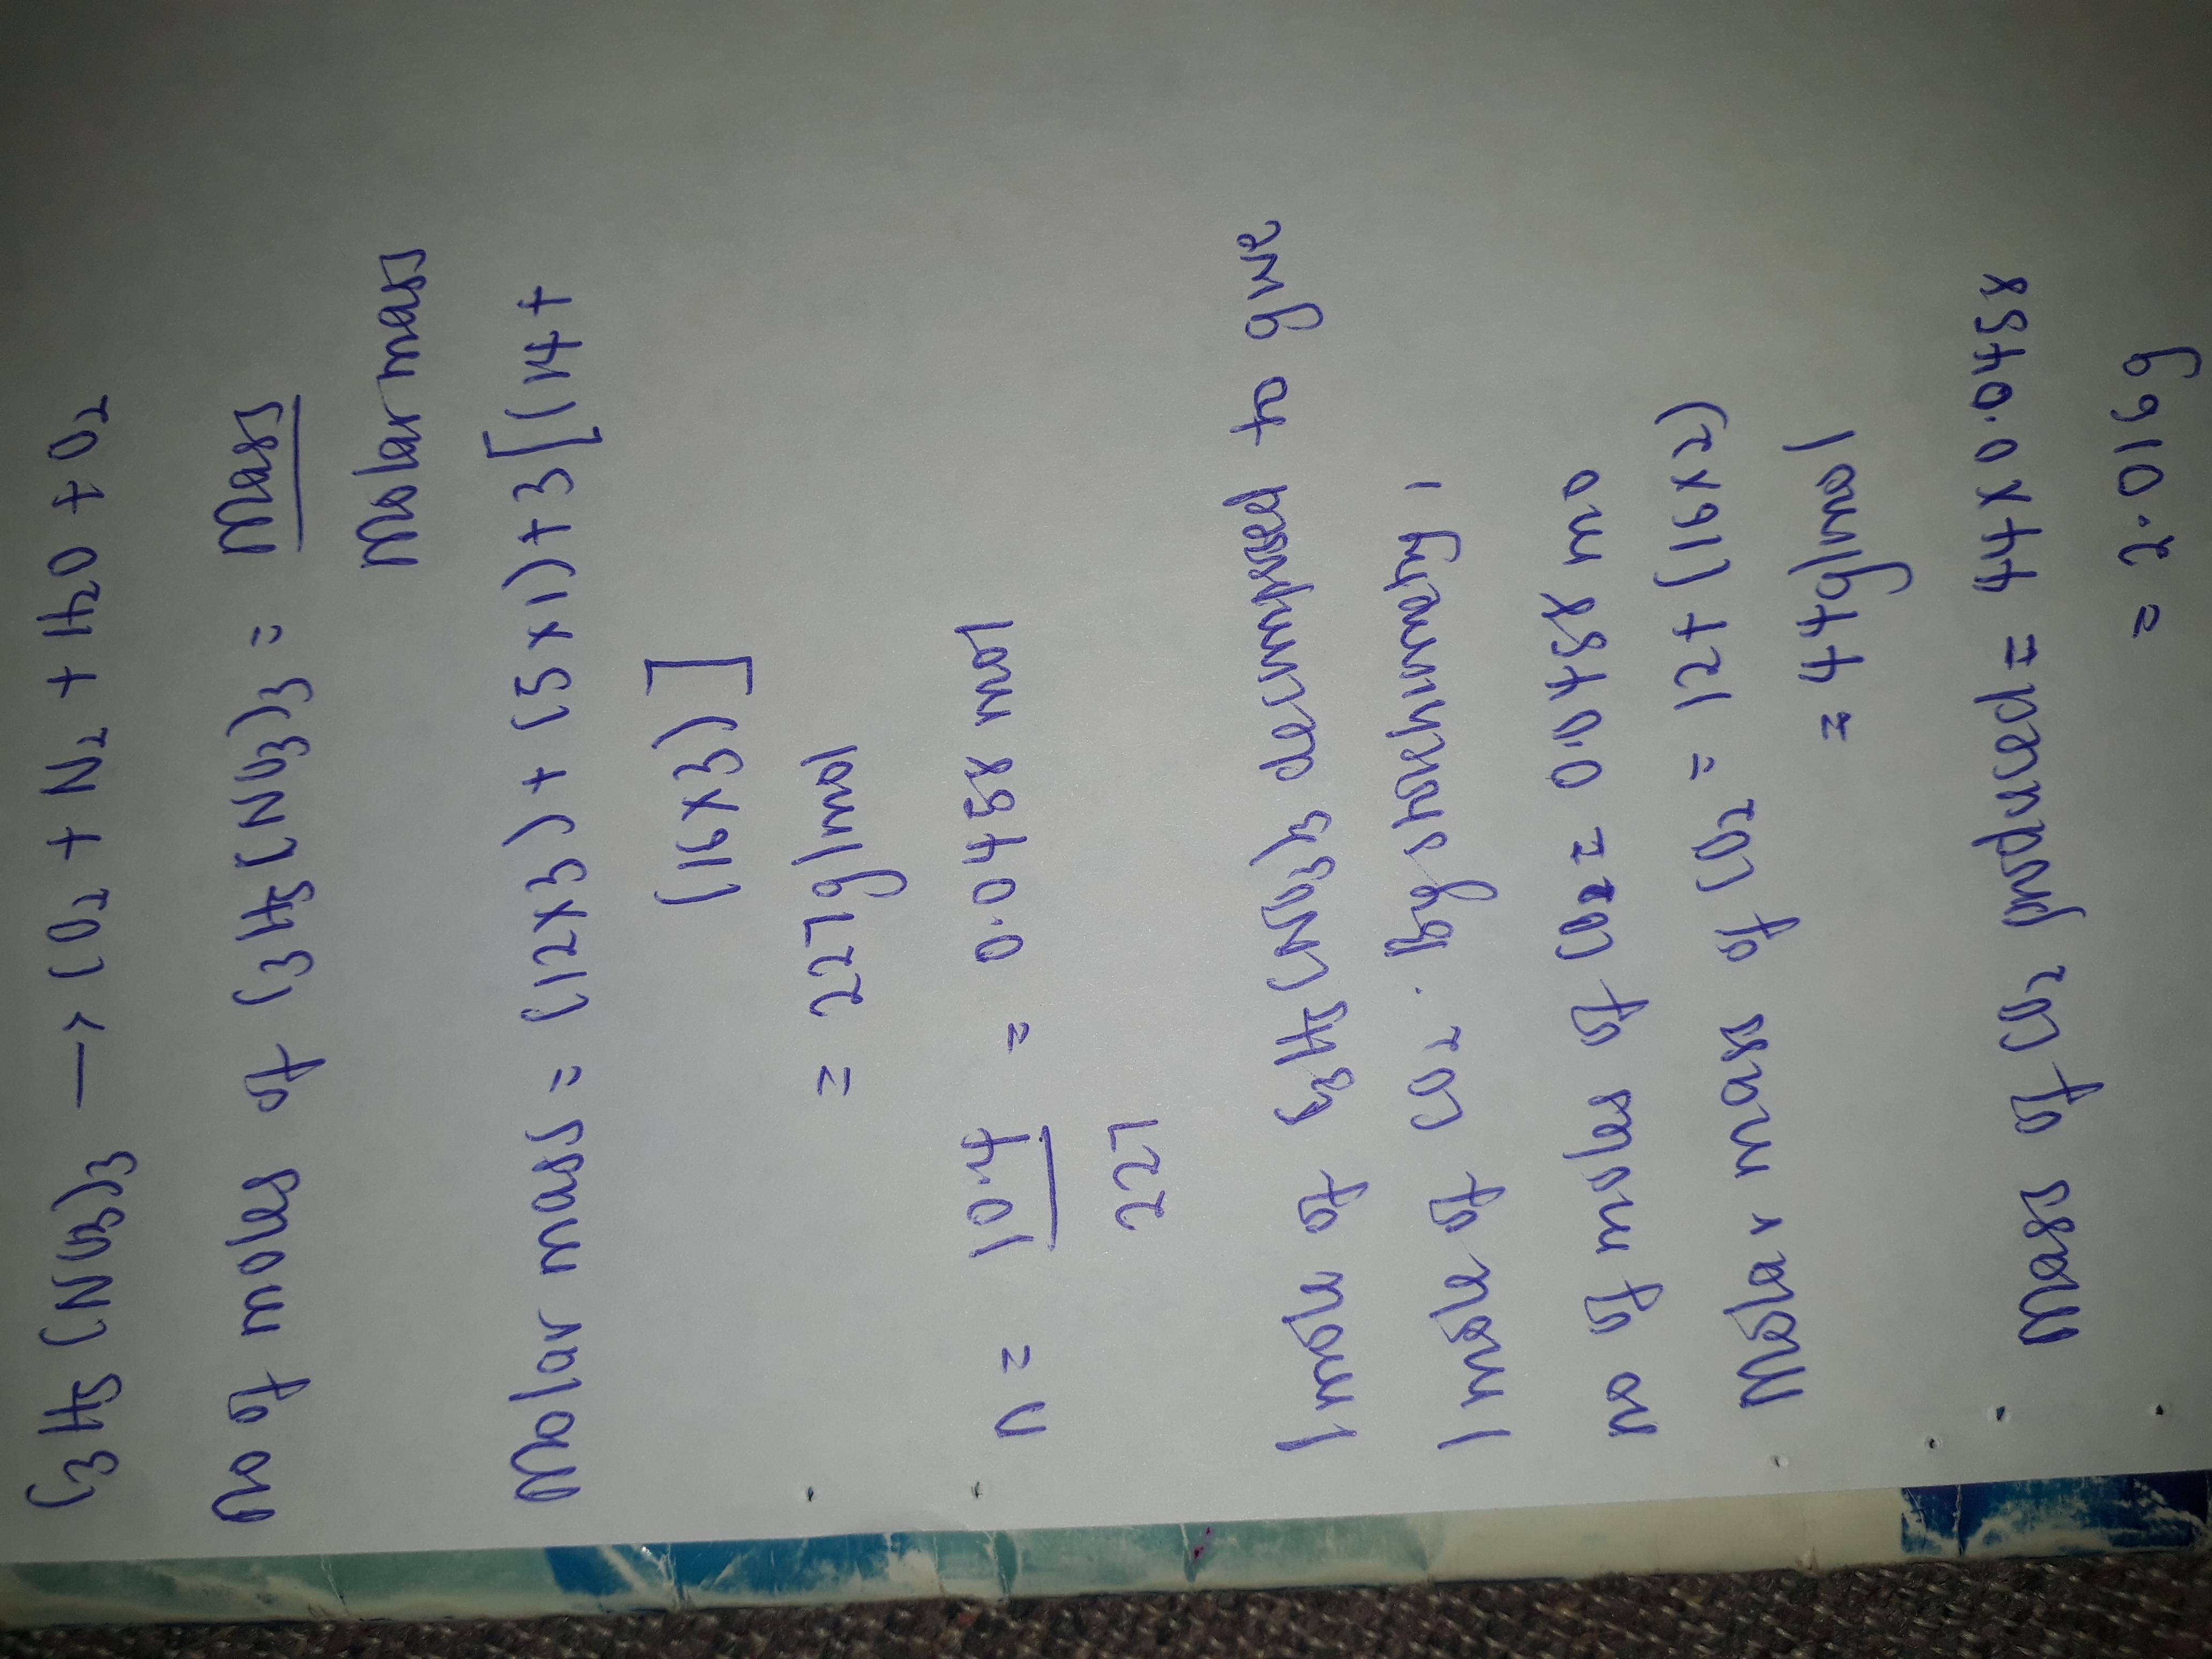 C3H5(NO3)3 → CO2 + N2 + H2O + O2
no of moles of C3H5(NO3)3 = Mass
Molar mass
Molar mass = (12x3) + (5x1) + 3[(14 +
(16x3)]
= 227g/mol
n = 10.4 = 0.0458 mol
227
1 mole of C3H5(NO3)3 decomposed to give
1 mole of CO2. By stoichiometry,
no of moles of CO2 = 0.0458 mo
Molar mass of CO2 = 12 + (16x2)
= 44g/mol
Mass of CO2 produced = 44 x 0.0458
= 2.016g